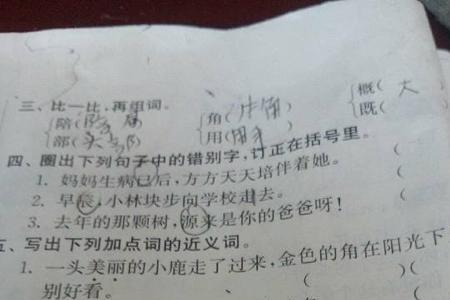 三、比一比,再组词。
陪( 角( 概( 大
部(头部) 用(用来) 既(
四、圈出下列句子中的错别字,订正在括号里。
1. 妈妈生病已后,方方天天培伴着她。 (
2. 早晨,小林块步向学校走去。 (
3. 去年的那颗树,源来是你的爸爸呀! (
五、写出下列加点词的近义词。
1. 一头美丽的小鹿走了过来,金色的角在阳光下
( ) (
别好看。